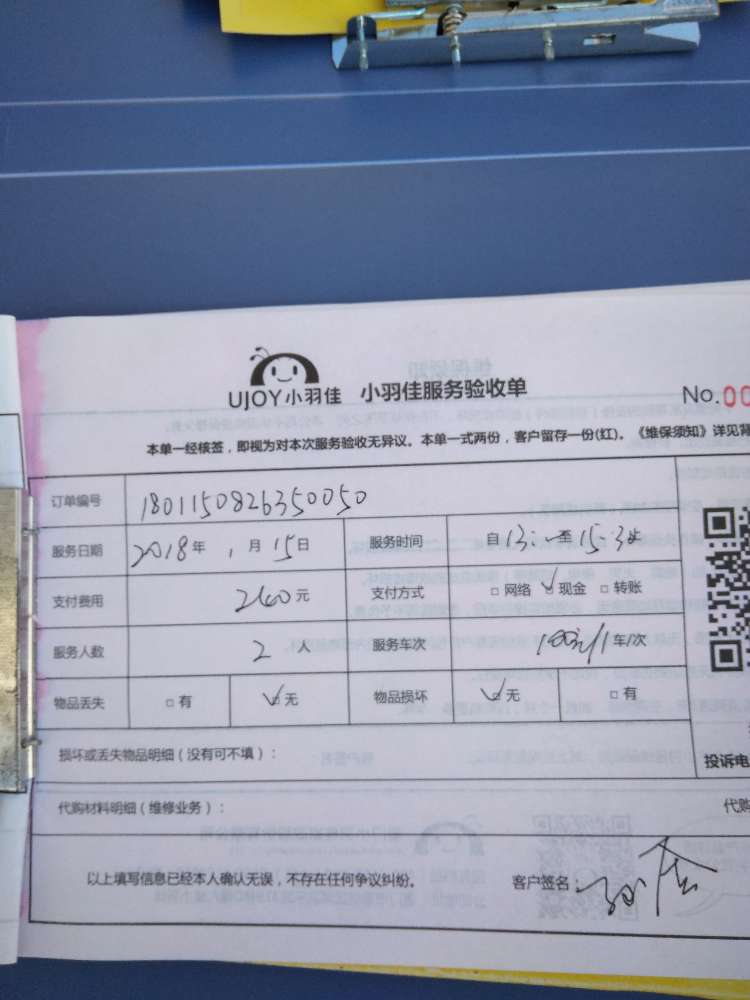 UJOY小羽佳 小羽佳服务验收单
No.00
本单一经核签，即视为对本次服务验收无异议。本单一式两份，客户留存一份(红)。《维保须知》详见背
订单编号 1801150826350050
服务日期 2018年 1月15日 服务时间 自13:~至15:3
支付费用 260元 支付方式 □网络 □现金 □转账
服务人数 2人 服务车次 车/次
物品丢失 □有 □无 物品损坏 □无 □有
损坏或丢失物品明细（没有可不填）：
投诉电
代购材料明细（维修业务）：
代购
以上填写信息已经本人确认无误，不存在任何争议纠纷。 客户签名：